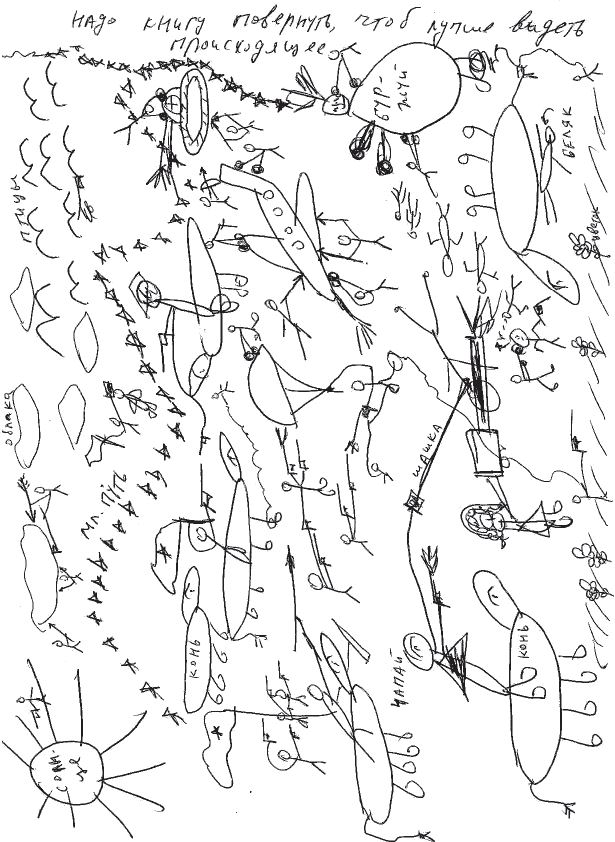 надо книгу повернуть, чтоб лучше видеть
происходящее
БУР-
ЖУЙ
БЕЛЯК
птицы
облака
мл. путь
ШАШКА
КОНЬ
ЧАПАЙ
КОНЬ
СОЛН-
ЦЕ